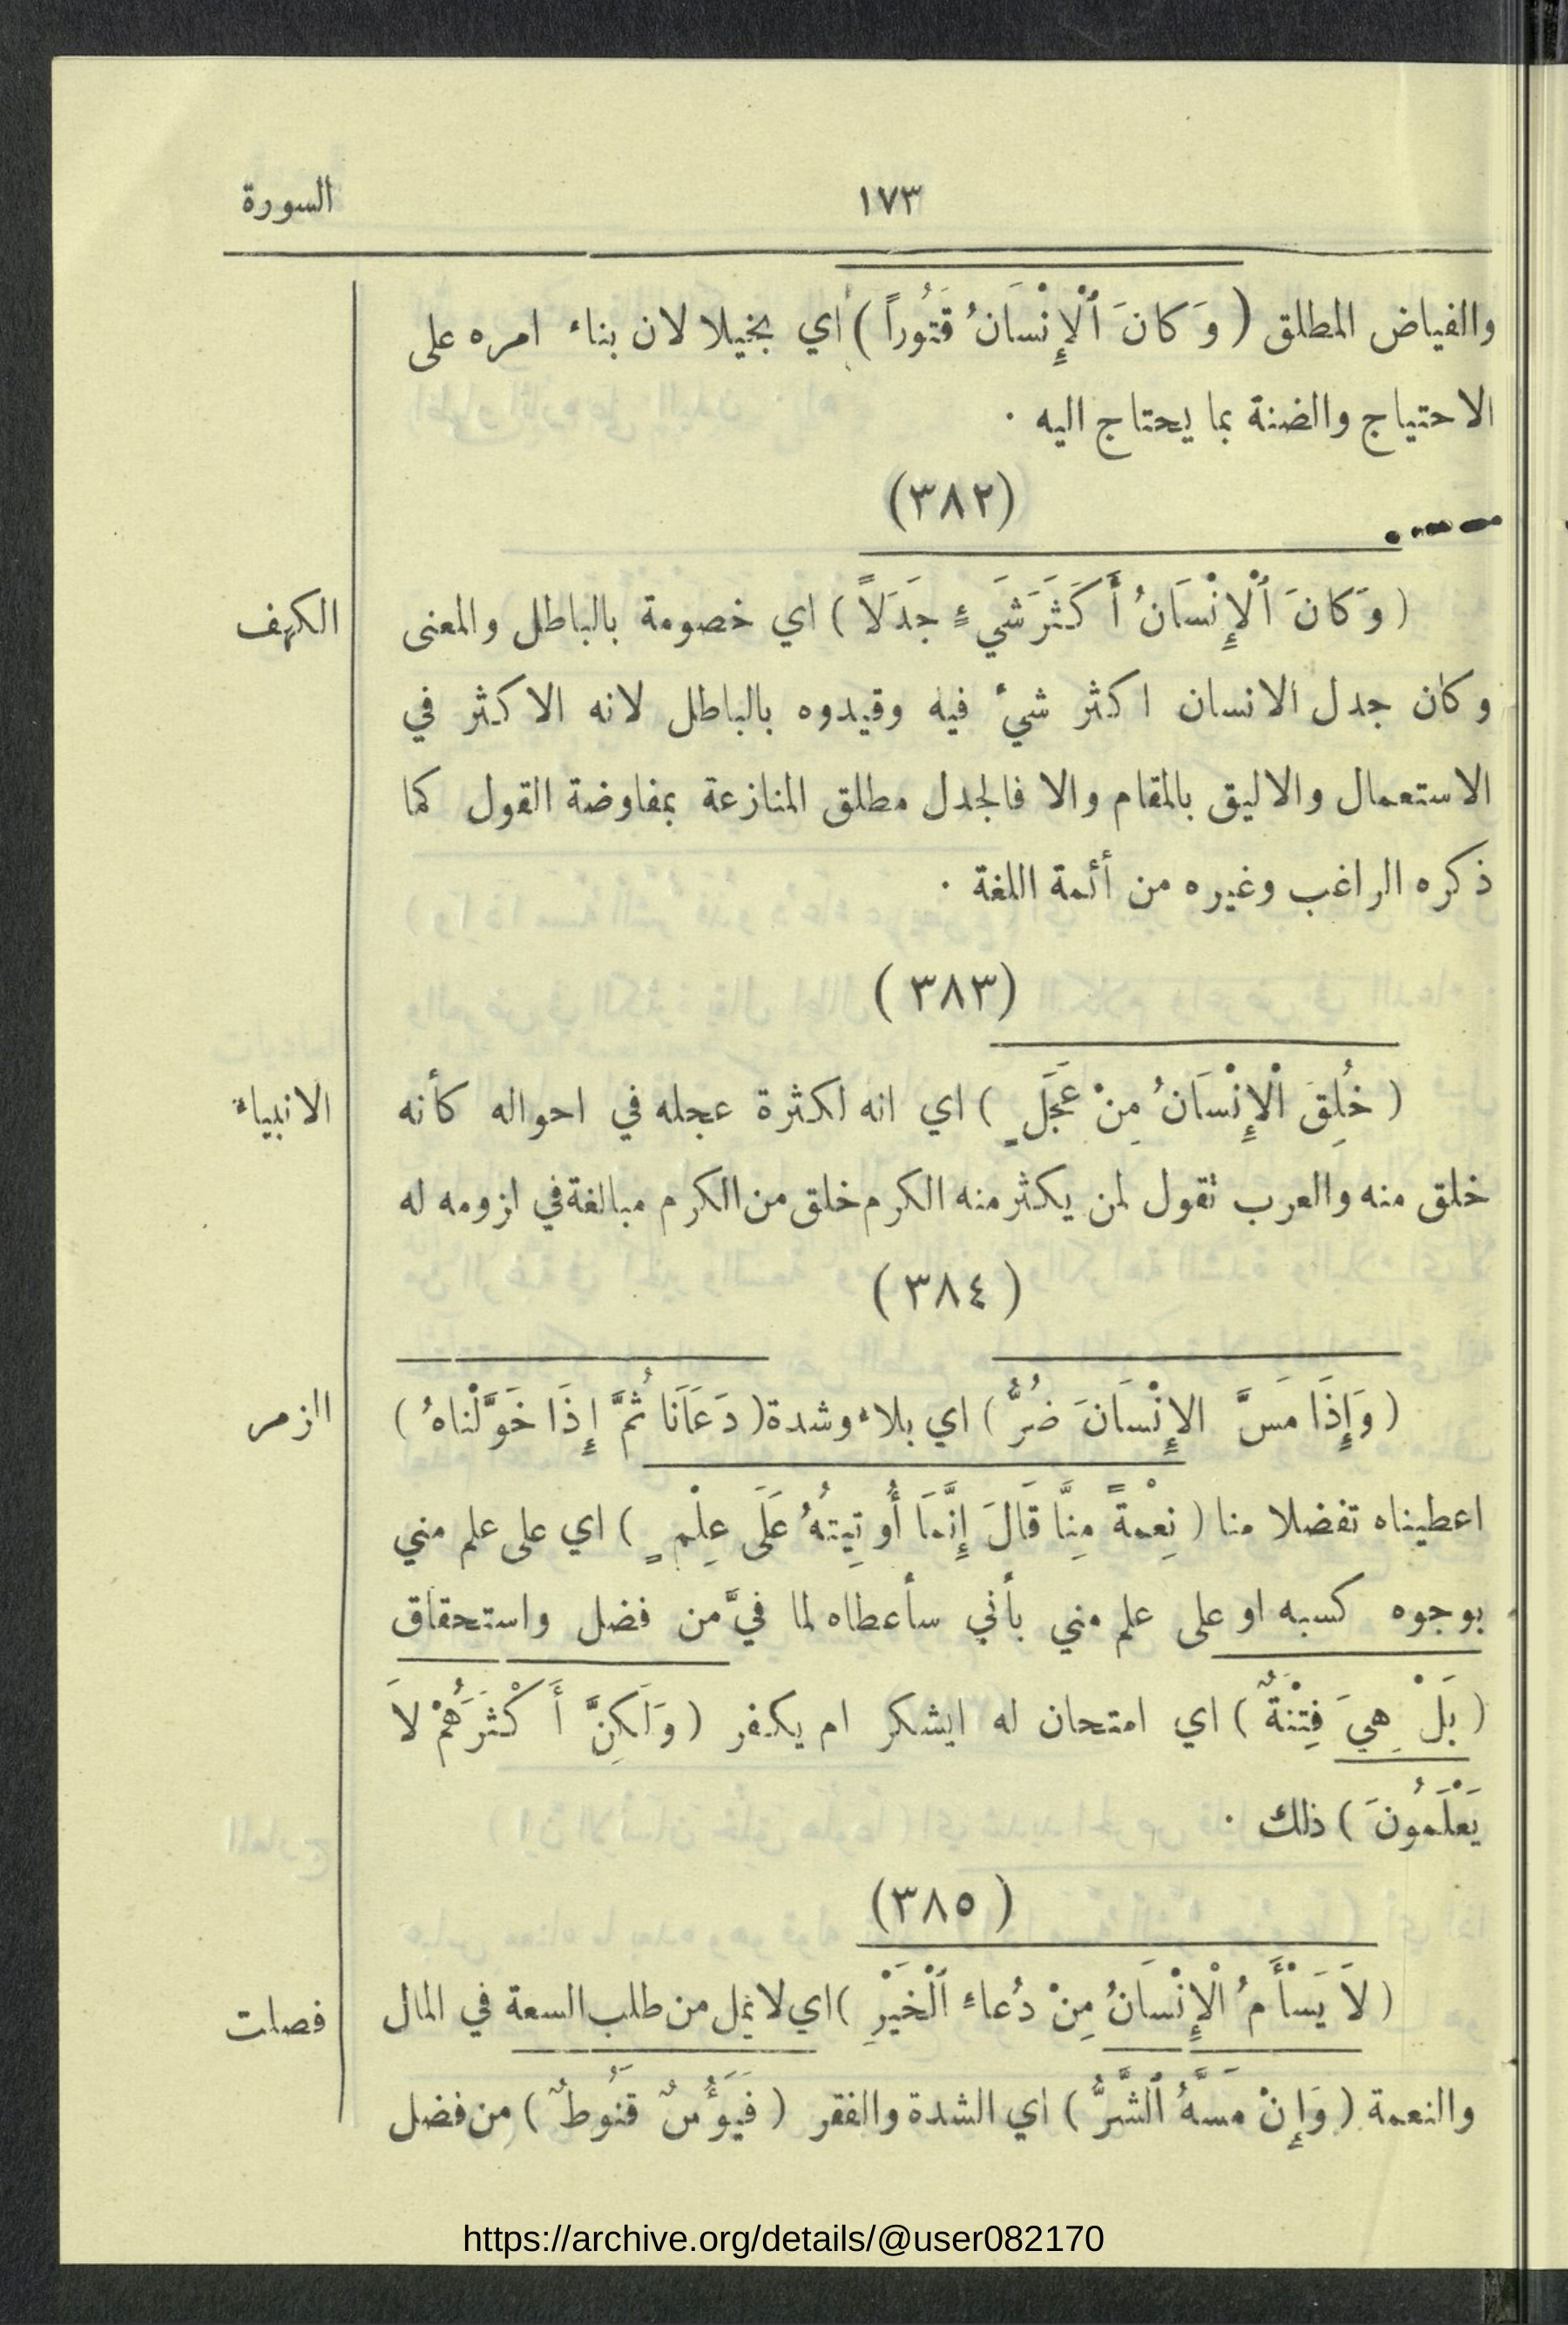 ١٧٣ السورة
والفياض المطلق ( وَكانَ ٱلْإِنْسَانُ قَتُوراً ) اي بخيلا لان بناء امره على
الاحتياج والضنة بما يحتاج اليه ·
(٣٨٢)
( وَكانَ ٱلْإِنْسَانُ أَكَثَرَ شَيءٍ جَدَلاً ) اي خصومة بالباطل والمعنى الكهف
وكان جدل الانسان اكثر شيء فيه وقيدوه بالباطل لانه الاكثر في
الاستعمال والاليق بالمقام والا فالجدل مطلق المنازعة بمفاوضة القول كما
ذكره الراغب وغيره من أئمة اللغة ·
(٣٨٣ )
( خُلِقَ ٱلْإِنْسَانُ مِنْ عَجَلٍ ) اي انه لكثرة عجله في احواله كأنه الانبياء
خلق منه والعرب تقول لمن يكثر منه الكرم خلق من الكرم مبالغة في لزومه له
( ٣٨٤ )
( وَإِذَا مَسَّ الإِنْسَانَ ضُرٌّ ) اي بلاء وشدة ( دَعَانَا ثُمَّ إِذَا خَوَّلْنَاهُ ) الزمر
اعطيناه تفضلا منا ( نِعْمةً مِنَّا قَالَ إِنَّمَا أُوتِيتُهُ عَلَى عِلْمٍ ) اي على علم مني
بوجوه كسبه او على علم مني بأني سأعطاه لما فيَّ من فضل واستحقاق
( بَلْ هِيَ فِتْنَةٌ ) اي امتحان له ايشكر ام يكفر ( وَلَكِنَّ أَكْثَرَهُمْ لاَ
يَعْلَمُونَ ) ذلك ·
( ٣٨٥)
( لاَ يَسْأَمُ ٱلْإِنْسَانُ مِنْ دُعاءِ ٱلْخَيْرِ ) اي لا يمل من طلب السعة في المال فصلت
والنعمة ( وَإِنْ مَسَّهُ ٱلشَّرُّ ) اي الشدة والفقر ( فَيَؤُسٌ قَنُوطٌ ) من فضل
https://archive.org/details/@user082170